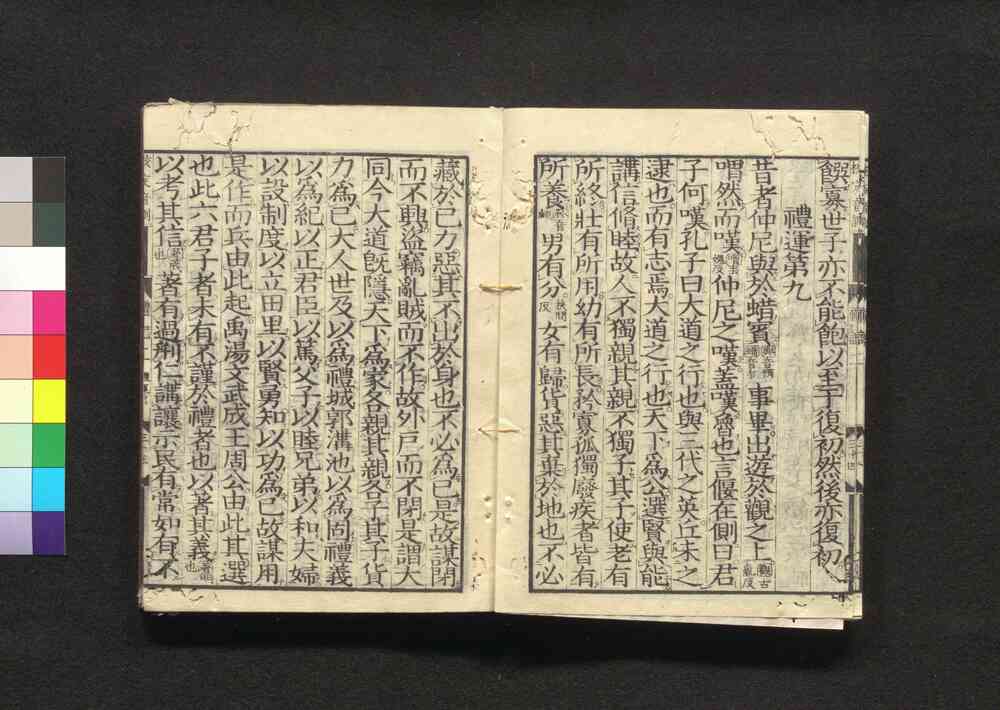 饌寡世子亦不能飽以至于復初然後亦復初
禮運第九
昔者仲尼與於蜡賓事畢出遊於觀之上
喟然而嘆仲尼之嘆蓋嘆魯也言偃在側曰君
子何嘆孔子曰大道之行也與三代之英丘未之
逮也而有志焉大道之行也天下為公選賢與能
講信脩睦故人不獨親其親不獨子其子使老有
所終壯有所用幼有所長矜寡孤獨廢疾者皆有
所養男有分女有歸貨惡其棄於地也不必
藏於己力惡其不出於身也不必為己是故謀閉
而不興盜竊亂賊而不作故外戶而不閉是謂大
同今大道既隱天下為家各親其親各子其子貨
力為己大人世及以為禮城郭溝池以為固禮義
以為紀以正君臣以篤父子以睦兄弟以和夫婦
以設制度以立田里以賢勇知以功為己故謀用
是作而兵由此起禹湯文武成王周公由此其選
也此六君子者未有不謹於禮者也以著其義
以考其信著有過刑仁講讓示民有常如有不